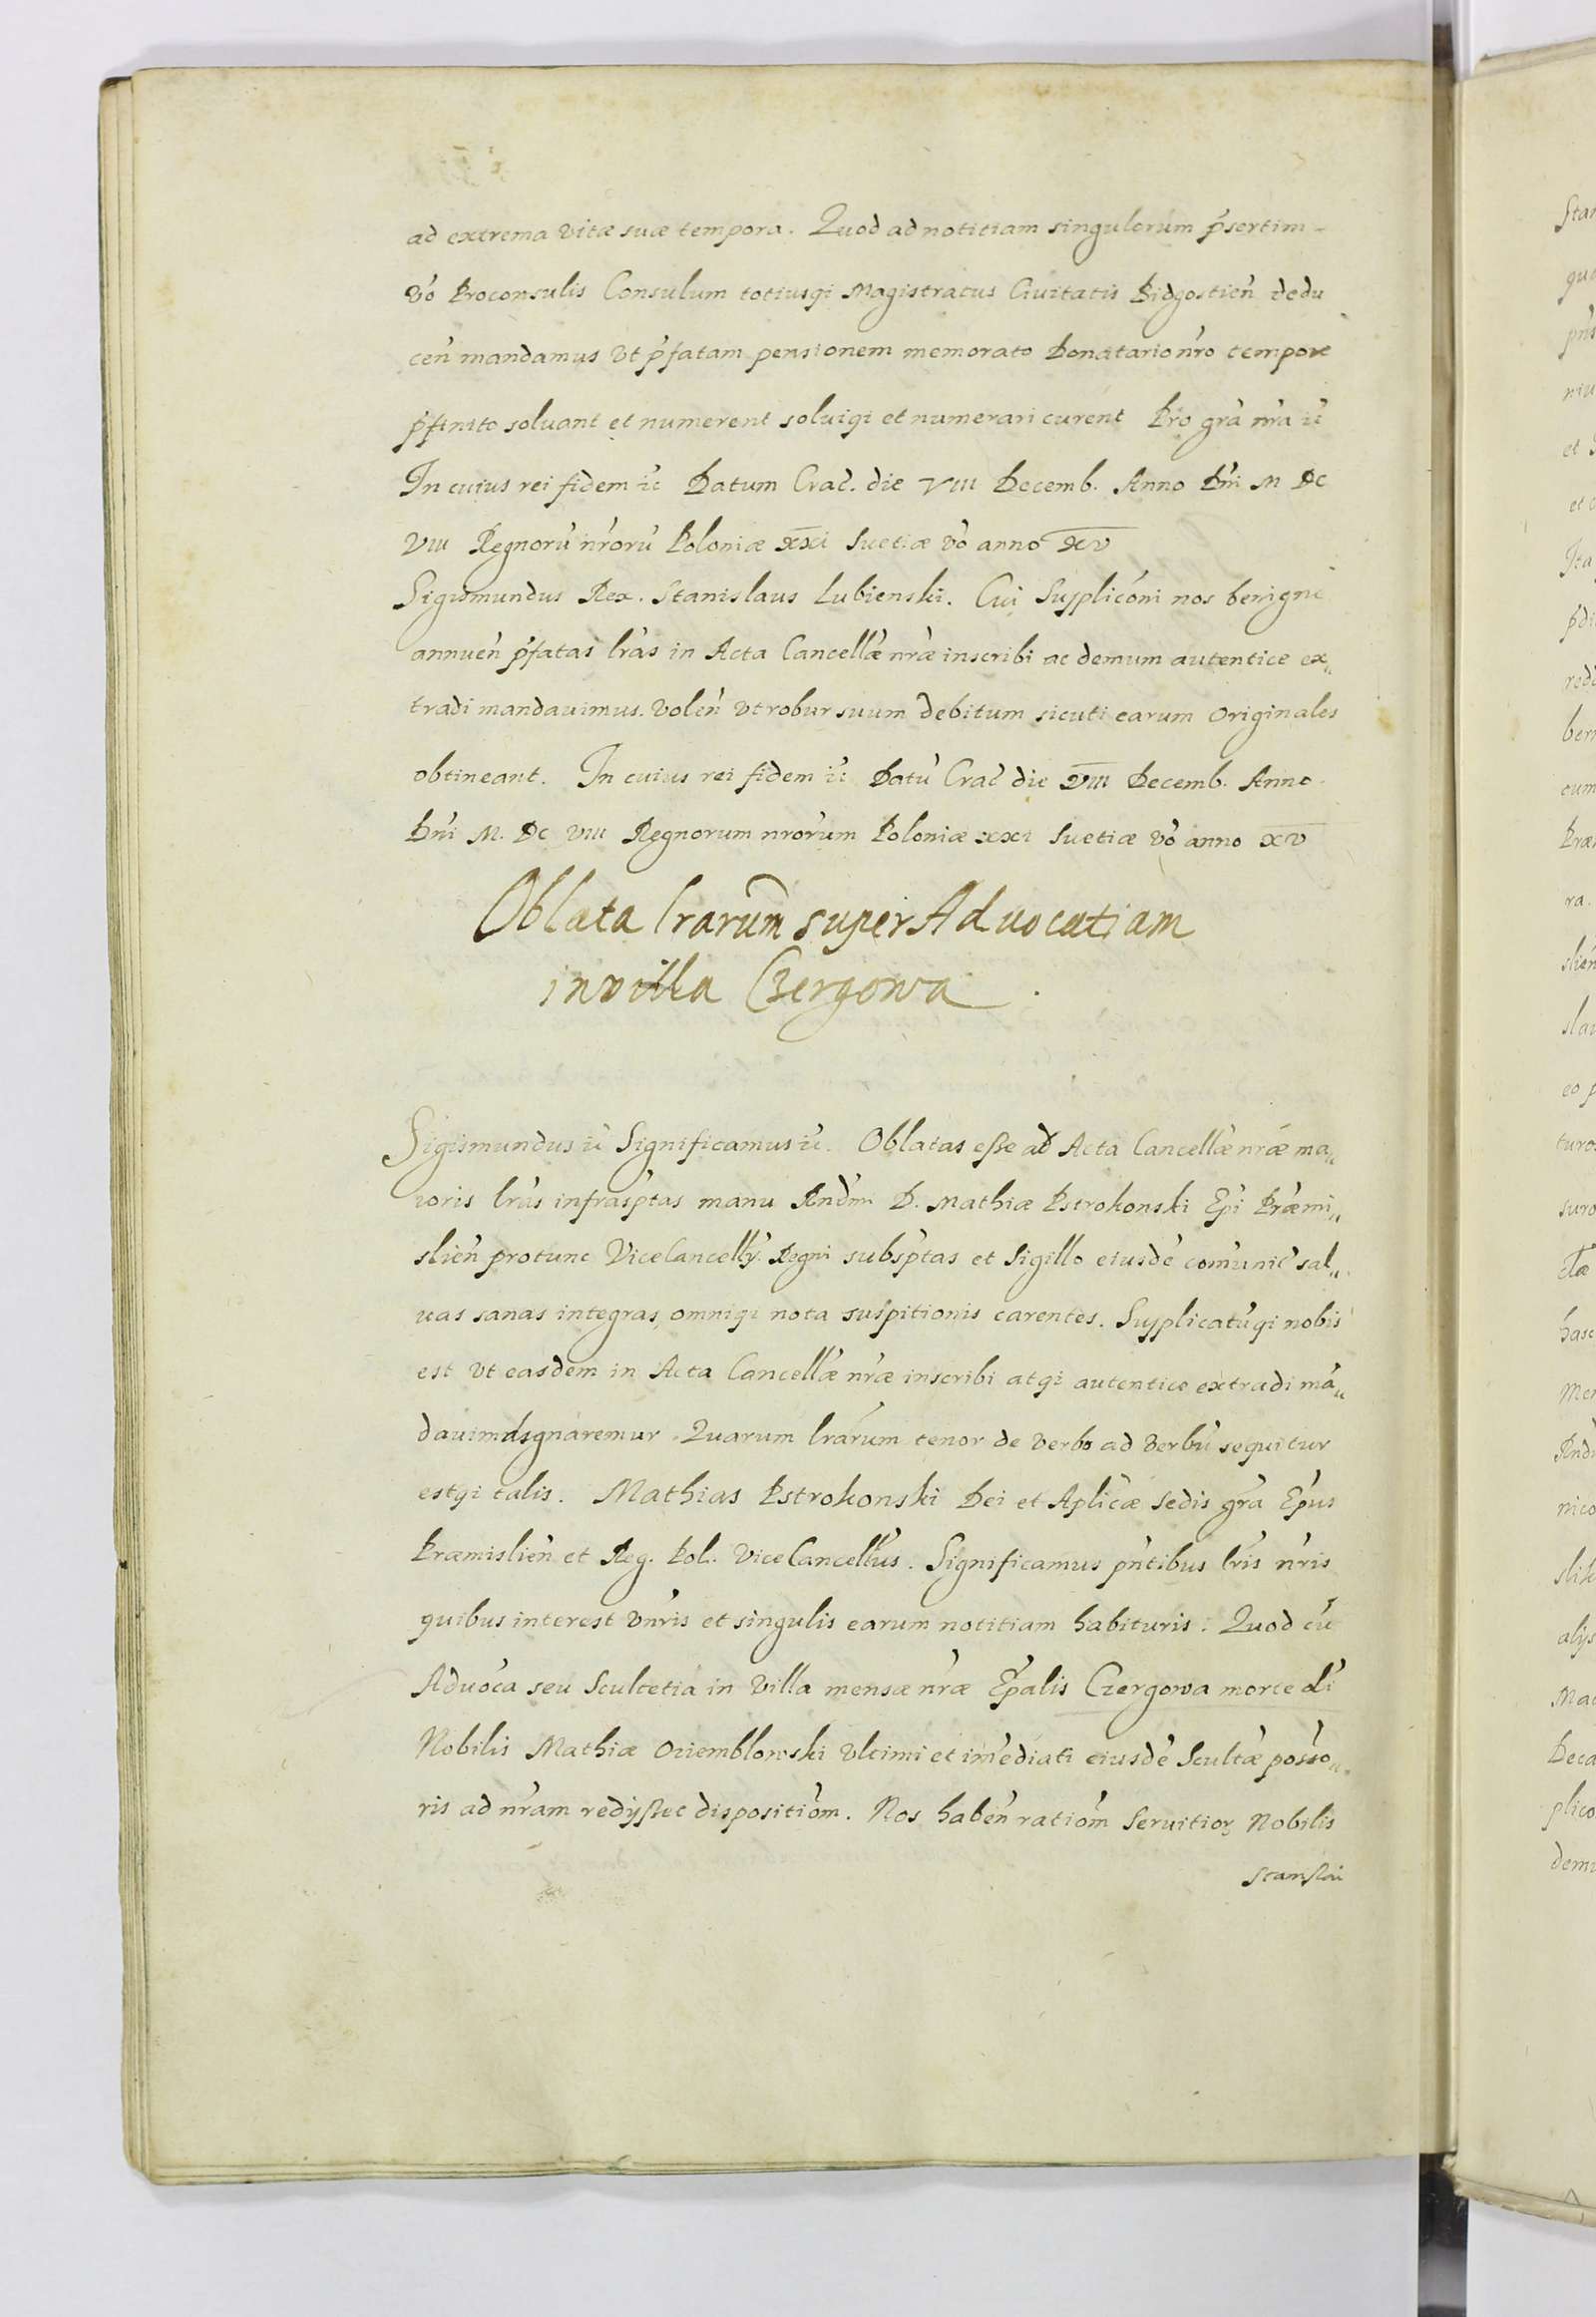 ad extrema vitæ suæ tempora. Quod ad notitiam singulorum p̃sertim
vo Proconsulis Consulum totiusqʒ Magistratus Ciuitatis Bidgostien̄ dedu
cen̄ mandamus vt p̃fatam pensionem memorato Donatario nr̄o tempore
p̃finito soluant et numerent soluiqʒ et numerari curent Pro gr̄a nr̄a ꝛc̄
In cuius rei fidem ꝛc̄ Datum Crac̄. die VIII Decemb. Anno Dn̄i M DC
VIII Regnorū nr̄orū Poloniæ XXI Suetiæ vō anno XV
Sigismundus Rex. Stanislaus Lubienski. Cui Supplicōni nos benigne
annuen̄ p̃fatas lr̄as in Acta Cancellæ nr̄æ inscribi ac demum autentice ex„
tradi mandauimus. Volen̄ vt robur suum debitum sicuti earum Originales
obtineant. In cuius rei fidem ꝛc̄ Datū Crac̄ die VIII Decemb. Anno
Dn̄i M. DC VIII Regnorum nrōrum Poloniæ XXI Suetiæ vō anno XV
Oblata lrarūm super Aduocatiam
in villa Czergowa.
Sigismundus ꝛc̄ Significamus ꝛc̄. Oblatas eße ad Acta Cancellæ nr̄æ ma„
ioris lr̄as infrasp̄tas manu Rnd̄mi D. Mathiæ Pstrokonski Ep̄i Præmi„
slien̄ protunc ViceCancellӯ. Regni subsp̄tas et Sigillo eiusdē com̄unit̄ sal„
uas sanas integras, omniqʒ nota suspitionis carentes. Supplicatūqʒ nobis
est vt easdem in Acta Cancellæ nr̄æ inscribi atqʒ autentice extradi mā„
dauim dignaremur. Quarum lrārum tenor de verbo ad verbū sequitur
estqʒ talis. Mathias Pstrokonski Dei et Aplicæ Sedis gr̄a Ep̄us
Præmislien̄ et Reg. Pol. ViceCancellius. Significamus pn̄tibus lr̄is nr̄is
quibus interest vn̄ris et singulis earum notitiam habituris: Quod cū
Aduōca seu Scultetia in Villa mensæ nr̄æ Ep̄alis Czergowa morte oli
Nobilis Mathiæ Oziemblowski vltimi et im̄ediati eiusdē Scultæ poss̄o„
ris ad nr̄am redӱßet dispositiōm. Nos haben̄ ratiōm Seruitioꝝ Nobilis
Stanslai